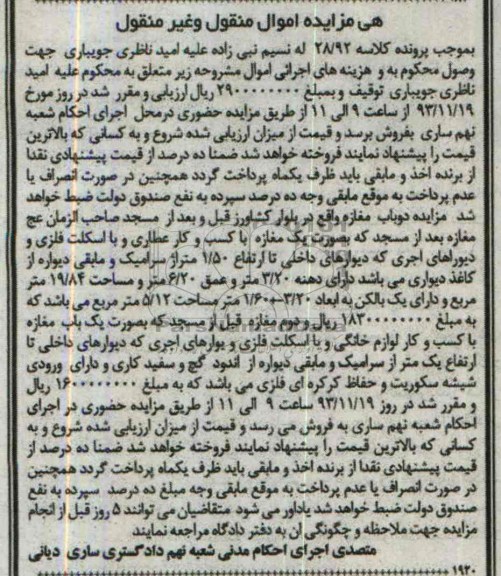 هی مزایده اموال منقول وغیر منقول
بموجب پرونده کلاسه ۲۸/۹۲ له نسیم نبی زاده علیه امید ناظری جویباری جهت
وصول محکوم به و هزینه های اجرائی اموال مشروحه زیر متعلق به محکوم علیه امید
ناظری جویباری توقیف و بمبلغ ۲۹۰۰۰۰۰۰۰۰ ریال ارزیابی و مقرر شد در روز مورخ
۹۳/۱۱/۱۹ از ساعت ۹ الی ۱۱ از طریق مزایده حضوری درمحل اجرای احکام شعبه
نهم ساری بفروش برسد و قیمت از میزان ارزیابی شده شروع و به کسانی که بالاترین
قیمت را پیشنهاد نمایند فروخته خواهد شد ضمنا ده درصد از قیمت پیشنهادی نقدا
از برنده اخذ و مابقی باید ظرف یکماه پرداخت گردد همچنین در صورت انصراف یا
عدم پرداخت به موقع مابقی وجه ده درصد سپرده به نفع صندوق دولت ضبط خواهد
شد مزایده دوباب مغازه واقع در بلوار کشاورز قبل و بعد از مسجد صاحب الزمان عج
مغازه بعد از مسجد که بصورت یک مغازه با کسب و کار عطاری و با اسکلت فلزی و
دیوراهای اجری که دیوارهای داخلی تا ارتفاع ۱/۵۰ متراژ سرامیک و مابقی دیواره از
کاغذ دیواری می باشد دارای دهنه ۳/۲۰ متر و عمق ۶/۲۰ متر و مساحت ۱۹/۸۴ متر
مربع و دارای یک بالکن به ابعاد ۳/۲۰-۱/۶۰ متر مساحت ۵/۱۲ متر مربع می باشد که
به مبلغ ۱۸۳۰۰۰۰۰۰۰ ریال و دوم مغازه قبل از مسجد که بصورت یک باب مغازه
با کسب و کار لوازم خانگی و با اسکلت فلزی و یوارهای اجری که دیوارهای داخلی تا
ارتفاع یک متر از سرامیک و مابقی دیواره از اندود گچ و سفید کاری و دارای ورودی
شیشه سکوریت و حفاظ کرکره ای فلزی می باشد که به مبلغ ۱۶۰۰۰۰۰۰۰۰ ریال
و مقرر شد در روز ۹۳/۱۱/۱۹ ساعت ۹ الی ۱۱ از طریق مزایده حضوری در اجرای
احکام شعبه نهم ساری به فروش می رسد و قیمت از میزان ارزیابی شده شروع و به
کسانی که بالاترین قیمت را پیشنهاد نمایند فروخته خواهد شد ضمنا ده درصد از
قیمت پیشنهادی نقدا از برنده اخذ و مابقی باید ظرف یکماه پرداخت گردد همچنین
در صورت انصراف یا عدم پرداخت به موقع مابقی وجه مبلغ ده درصد سپرده به نفع
صندوق دولت ضبط خواهد شد یادآور می شود متقاضیان می توانند ۵ روز قبل از انجام
مزایده جهت ملاحظه و چگونگی ان به دفتر دادگاه مراجعه نمایند
متصدی اجرای احکام مدنی شعبه نهم دادگستری ساری دیانی
۱۹۲۰